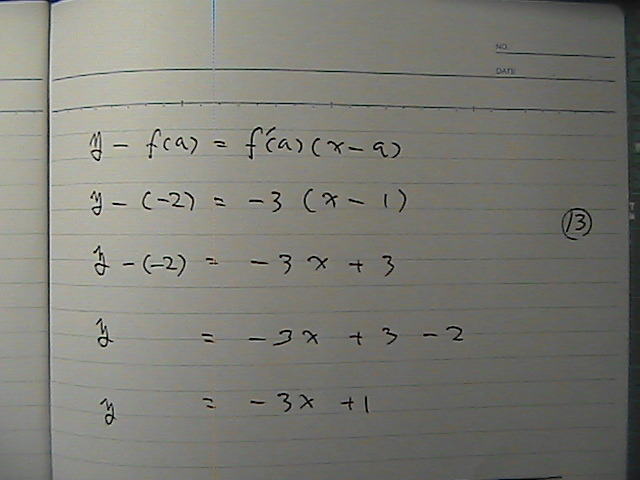 NO.
DATE
y - f(a) = f'(a)(x - a)
y - (-2) = -3 (x - 1)
13
y - (-2) = -3x + 3
y = -3x + 3 - 2
y = -3x + 1